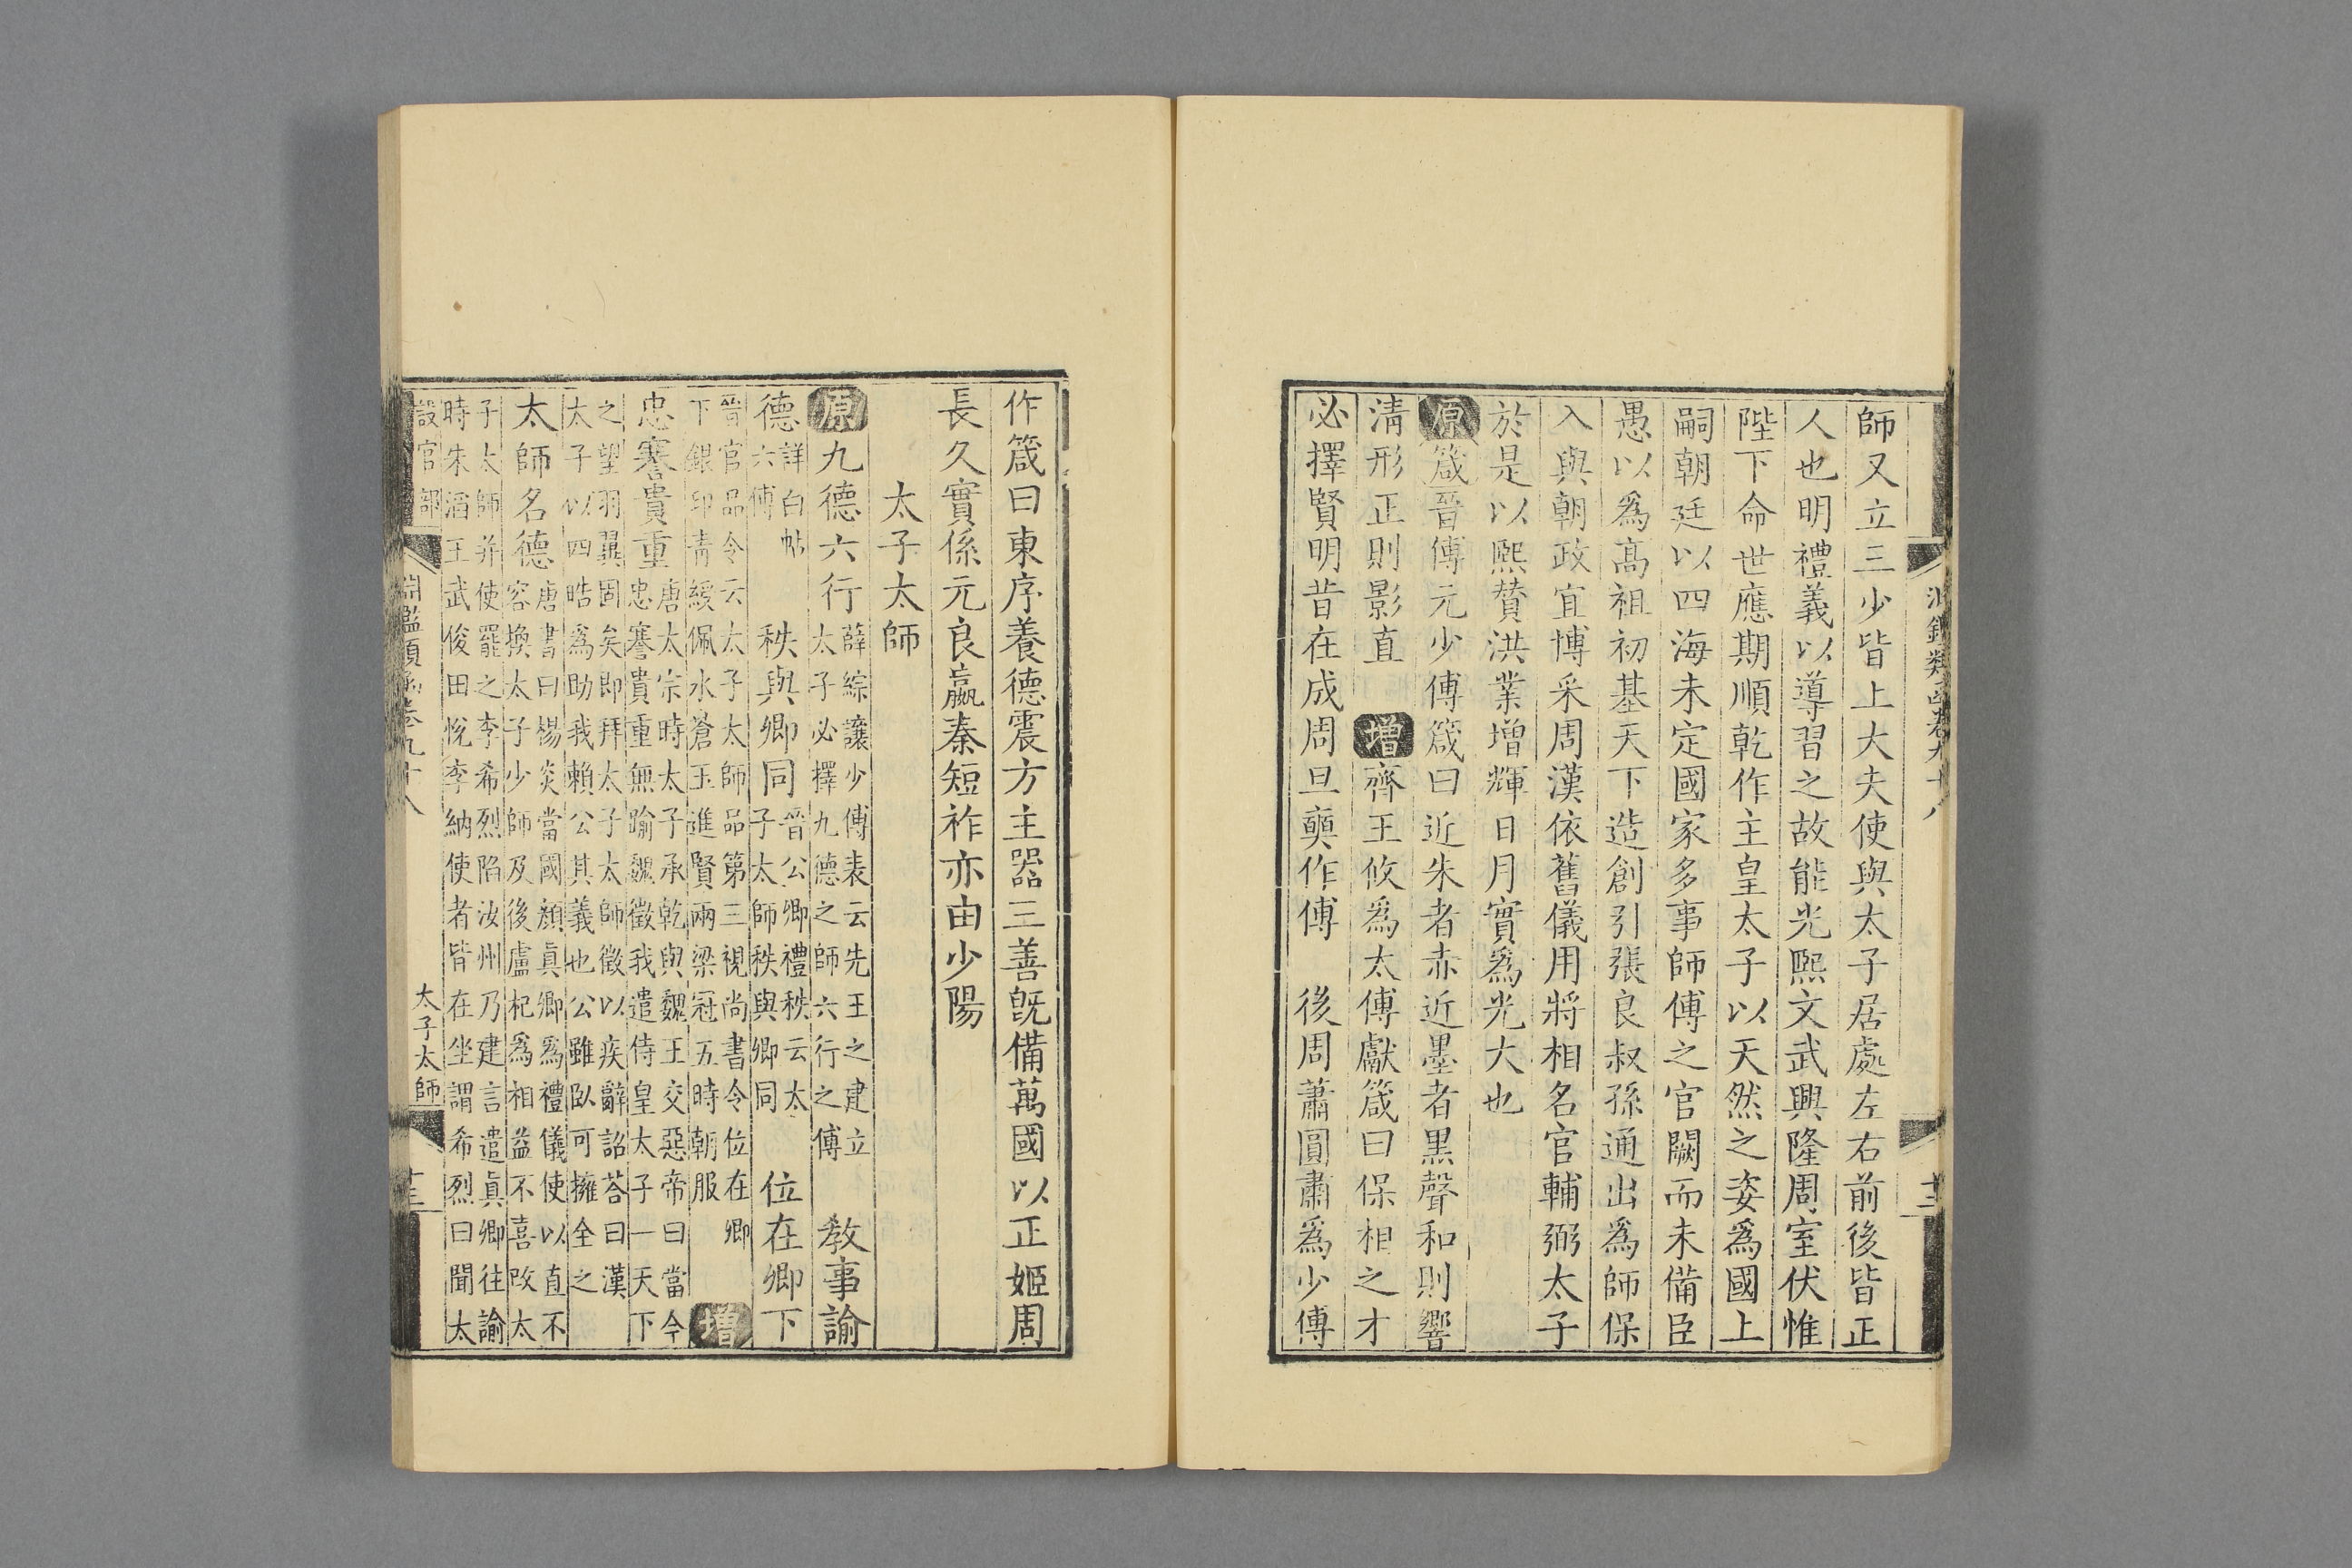 師又立三少皆上大夫使與太子居處左右前後皆正
人也明禮義以導習之故能光熙文武興隆周室伏惟
陛下命世應期順乾作主皇太子以天然之姿爲國上
嗣朝廷以四海未定國家多事師傅之官闕而未備臣
愚以爲髙祖初基天下造創引張良叔孫通出爲師保
入與朝政宜博采周漢依舊儀用將相名官輔弼太子
於是以熙贊洪業增輝日月實爲光大也
原箴晉傅元少傅箴曰近朱者赤近墨者黒聲和則響
淸形正則影直 增齊王攸爲太傅獻箴曰保相之才
必擇賢明昔在成周旦奭作傅 後周蕭圓肅爲少傅
作箴曰東序養德震方主器三善旣備萬國以正姬周
長久實係元良嬴秦短祚亦由少陽
太子太師
原九德六行 薛綜讓少傅表云先王之建立
太子必擇九德之師六行之傅 敎事諭
德 詳白帖
六傅 秩與卿同 晉公卿禮秩云太
子太師秩與卿同 位在卿下
晉官品令云太子太師品第三視尚書令位在卿
下銀印靑綬佩水蒼玉進賢兩梁冠五時朝服 增
忠謇貴重 唐太宗時太子承乾與魏王交惡帝曰當今
忠謇貴重無踰魏徵我遣侍皇太子一天下
之望羽翼固矣卽拜太子太師徵以疾辭詔荅曰漢
太子以四皓爲助我賴公其義也公雖臥可擁全之
太師名德 唐書曰楊炎當國顏眞卿爲禮儀使以直不
容換太子少師及後盧杞爲相益不喜改太
子太師并使罷之李希烈陷汝州乃建言遣眞卿往諭
時朱滔王武俊田悅李納使者皆在坐謂希烈曰聞太
設官部 淵鑑類函卷九十八 太子太師 十三